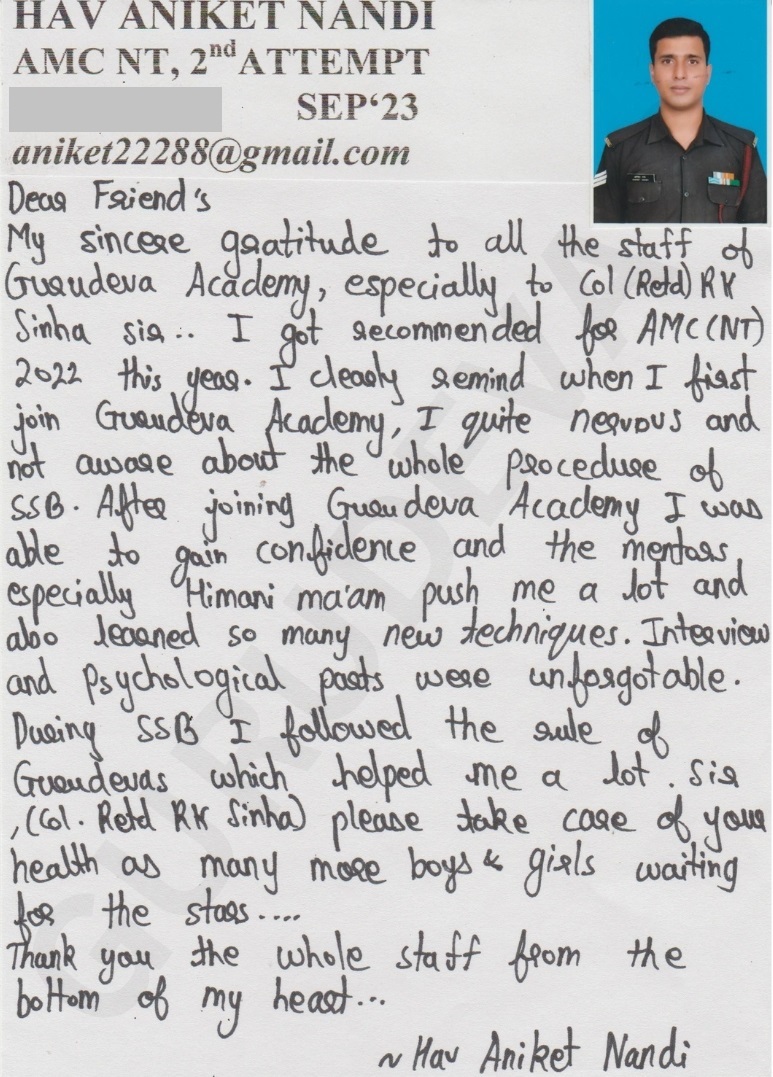 HAV ANIKET NANDI
AMC NT, 2nd ATTEMPT
SEP‘23
aniket22288@gmail.com
Dear Friend's
My sincere gratitude to all the staff of
Gurudeva Academy, especially to Col (Retd) RK
Sinha sir.. I got recommended for AMC(NT)
2022 this year. I clearly remind when I first
join Gurudeva Academy, I quite nervous and
not aware about the whole procedure of
SSB. After joining Gurudeva Academy I was
able to gain confidence and the mentors
especially Himani ma'am push me a lot and
also learned so many new techniques. Interview
and Psychological parts were unforgotable.
During SSB I followed the rule of
Gurudevas which helped me a lot. Sir
,(Col. Retd RK Sinha) please take care of your
health as many more boys & girls waiting
for the stars....
Thank you the whole staff from the
bottom of my heart...
~ Hav Aniket Nandi
GURUDEVA